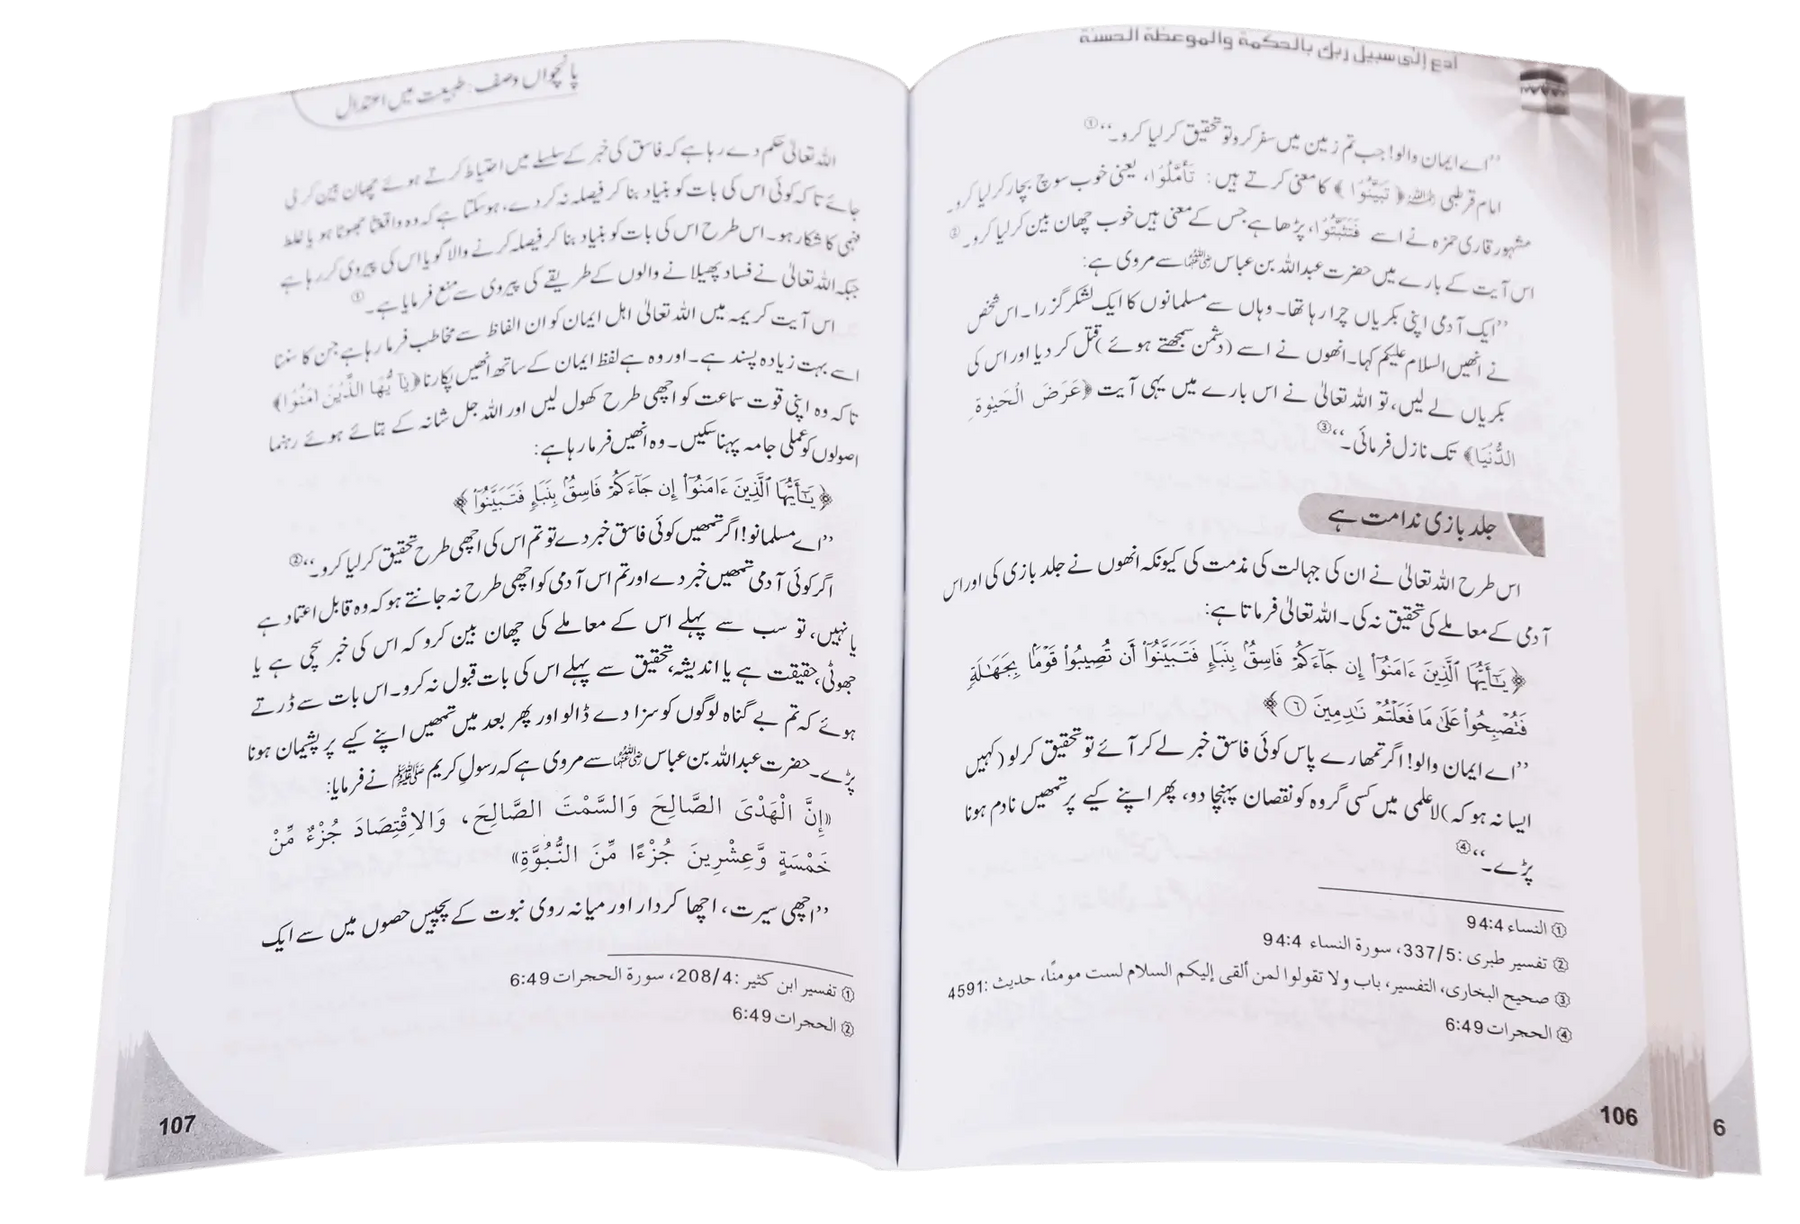 ادع إلى سبيل ربك بالحكمة والموعظة الحسنة
’’اے ایمان والو! جب تم زمین میں سفر کرو تو تحقیق کر لیا کرو۔‘‘①
امام قرطبی رحمہ اللہ ﴿تَبَيَّنُوْا﴾ کا معنی کرتے ہیں: تَأَمَّلُوْا، یعنی خوب سوچ بچار کر لیا کرو۔
مشہور قاری حمزہ نے اسے فَتَثَبَّتُوْا، پڑھا ہے جس کے معنی ہیں خوب چھان بین کر لیا کرو۔②
اس آیت کے بارے میں حضرت عبداللہ بن عباس رضی اللہ عنہما سے مروی ہے:
’’ایک آدمی اپنی بکریاں چرا رہا تھا۔ وہاں سے مسلمانوں کا ایک لشکر گزرا۔ اس شخص
نے انھیں السلام علیکم کہا۔ انھوں نے اسے (دشمن سمجھتے ہوئے) قتل کر دیا اور اس کی
بکریاں لے لیں، تو اللہ تعالیٰ نے اس بارے میں یہی آیت ﴿عَرَضَ الْحَيٰوةِ
الدُّنْيَا﴾ تک نازل فرمائی۔‘‘③
جلد بازی ندامت ہے
اس طرح اللہ تعالیٰ نے ان کی جہالت کی مذمت کی کیونکہ انھوں نے جلد بازی کی اور اس
آدمی کے معاملے کی تحقیق نہ کی۔ اللہ تعالیٰ فرماتا ہے:
﴿يَـٰٓأَيُّهَا ٱلَّذِينَ ءَامَنُوٓا۟ إِن جَآءَكُمْ فَاسِقٌۢ بِنَبَإٍ فَتَبَيَّنُوٓا۟ أَن تُصِيبُوا۟ قَوْمًۢا بِجَهَـٰلَةٍ
فَتُصْبِحُوا۟ عَلَىٰ مَا فَعَلْتُمْ نَـٰدِمِينَ ٦﴾
’’اے ایمان والو! اگر تمھارے پاس کوئی فاسق خبر لے کر آئے تو تحقیق کر لو (کہیں
ایسا نہ ہو کہ) لاعلمی میں کسی گروہ کو نقصان پہنچا دو، پھر اپنے کیے پر تمھیں نادم ہونا
پڑے۔‘‘④
① النساء 94:4
② تفسیر طبری: 337/5، سورة النساء 94:4
③ صحيح البخاری، التفسير، باب ولا تقولوا لمن ألقى إليكم السلام لست مومنًا، حدیث: 4591
④ الحجرات 6:49
106
6
پانچواں وصف: طبیعت میں اعتدال
اللہ تعالیٰ حکم دے رہا ہے کہ فاسق کی خبر کے سلسلے میں احتیاط کرتے ہوئے چھان بین کر لی
جائے تا کہ کوئی اس کی بات کو بنیاد بنا کر فیصلہ نہ کر دے، ہو سکتا ہے کہ وہ واقعتًا جھوٹا ہو یا غلط
فہمی کا شکار ہو۔ اس طرح اس کی بات کو بنیاد بنا کر فیصلہ کرنے والا گویا اس کی پیروی کر رہا ہے
جبکہ اللہ تعالیٰ نے فساد پھیلانے والوں کے طریقے کی پیروی سے منع فرمایا ہے۔①
اس آیت کریمہ میں اللہ تعالیٰ اہل ایمان کو ان الفاظ سے مخاطب فرما رہا ہے جن کا سننا
اسے بہت زیادہ پسند ہے۔ اور وہ ہے لفظ ایمان کے ساتھ انھیں پکارنا ﴿يٰٓاَيُّهَا الَّذِيْنَ اٰمَنُوْا﴾
تاکہ وہ اپنی قوت سماعت کو اچھی طرح کھول لیں اور اللہ جل شانہ کے بتائے ہوئے رہنما
اصولوں کو عملی جامہ پہنا سکیں۔ وہ انھیں فرما رہا ہے:
﴿يَـٰٓأَيُّهَا ٱلَّذِينَ ءَامَنُوٓا۟ إِن جَآءَكُمْ فَاسِقٌۢ بِنَبَإٍ فَتَبَيَّنُوٓا۟﴾
’’اے مسلمانو! اگر تمھیں کوئی فاسق خبر دے تو تم اس کی اچھی طرح تحقیق کر لیا کرو۔‘‘②
اگر کوئی آدمی تمھیں خبر دے اور تم اس آدمی کو اچھی طرح نہ جانتے ہو کہ وہ قابل اعتماد ہے
یا نہیں، تو سب سے پہلے اس کے معاملے کی چھان بین کرو کہ اس کی خبر سچی ہے یا
جھوٹی، حقیقت ہے یا اندیشہ، تحقیق سے پہلے اس کی بات قبول نہ کرو۔ اس بات سے ڈرتے
ہوئے کہ تم بے گناہ لوگوں کو سزا دے ڈالو اور پھر بعد میں تمھیں اپنے کیے پر پشیمان ہونا
پڑے۔ حضرت عبداللہ بن عباس رضی اللہ عنہما سے مروی ہے کہ رسول کریم ﷺ نے فرمایا:
«إِنَّ الْهَدْىَ الصَّالِحَ وَالسَّمْتَ الصَّالِحَ، وَالاِقْتِصَادَ جُزْءٌ مِّنْ
خَمْسَةٍ وَّعِشْرِينَ جُزْءًا مِّنَ النُّبُوَّةِ»
’’اچھی سیرت، اچھا کردار اور میانہ روی نبوت کے پچیس حصوں میں سے ایک
① تفسیر ابن کثیر: 208/4، سورة الحجرات 6:49
② الحجرات 6:49
107